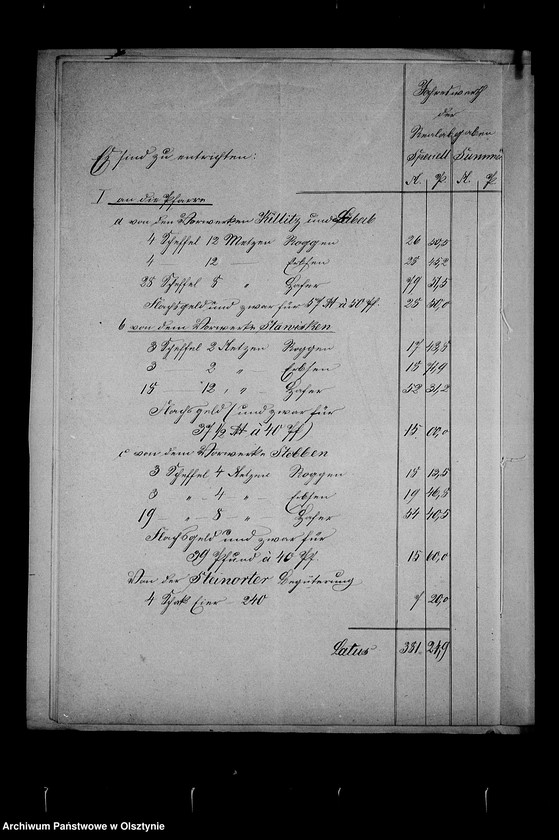 Jahreswerth
der
Realabgaben
Es sind zu entrichten:
Speciell Summa
M. Pf M. Pf
I an die Pfarre
a von den Vorwerken Kittlitz und Labab
4 Scheffel 12 Metzen Roggen 26
4 12 — Erbsen 25 45,2
25 Scheffel 5 " Hafer 79 31,5
Flachsgeld und zwar für 51 à 50 Pf. 25 50,0
b von dem Vorwerke Stawisken
3 Scheffel 2 Metzen Roggen 17 43,5
3 — 2 " — Erbsen 15
15 — 12 " — Hafer 52 31,2
Flachsgeld (und zwar für
37 1/2 à 40 Pf) 15 00,0
c von dem Vorwerke Stobben
3 Scheffel 4 Metzen Roggen 15 13,5
3 " 4 " — Erbsen 19 46,5
19 " 8 " Hafer 54 40,5
Flachsgeld und zwar für
39 Pfund à 40 Pf. 15 60,0
Von der Steinorter Begüterung
4 Schok Eier — 240 7 20,0
Latus 381 21,9
Archiwum Państwowe w Olsztynie